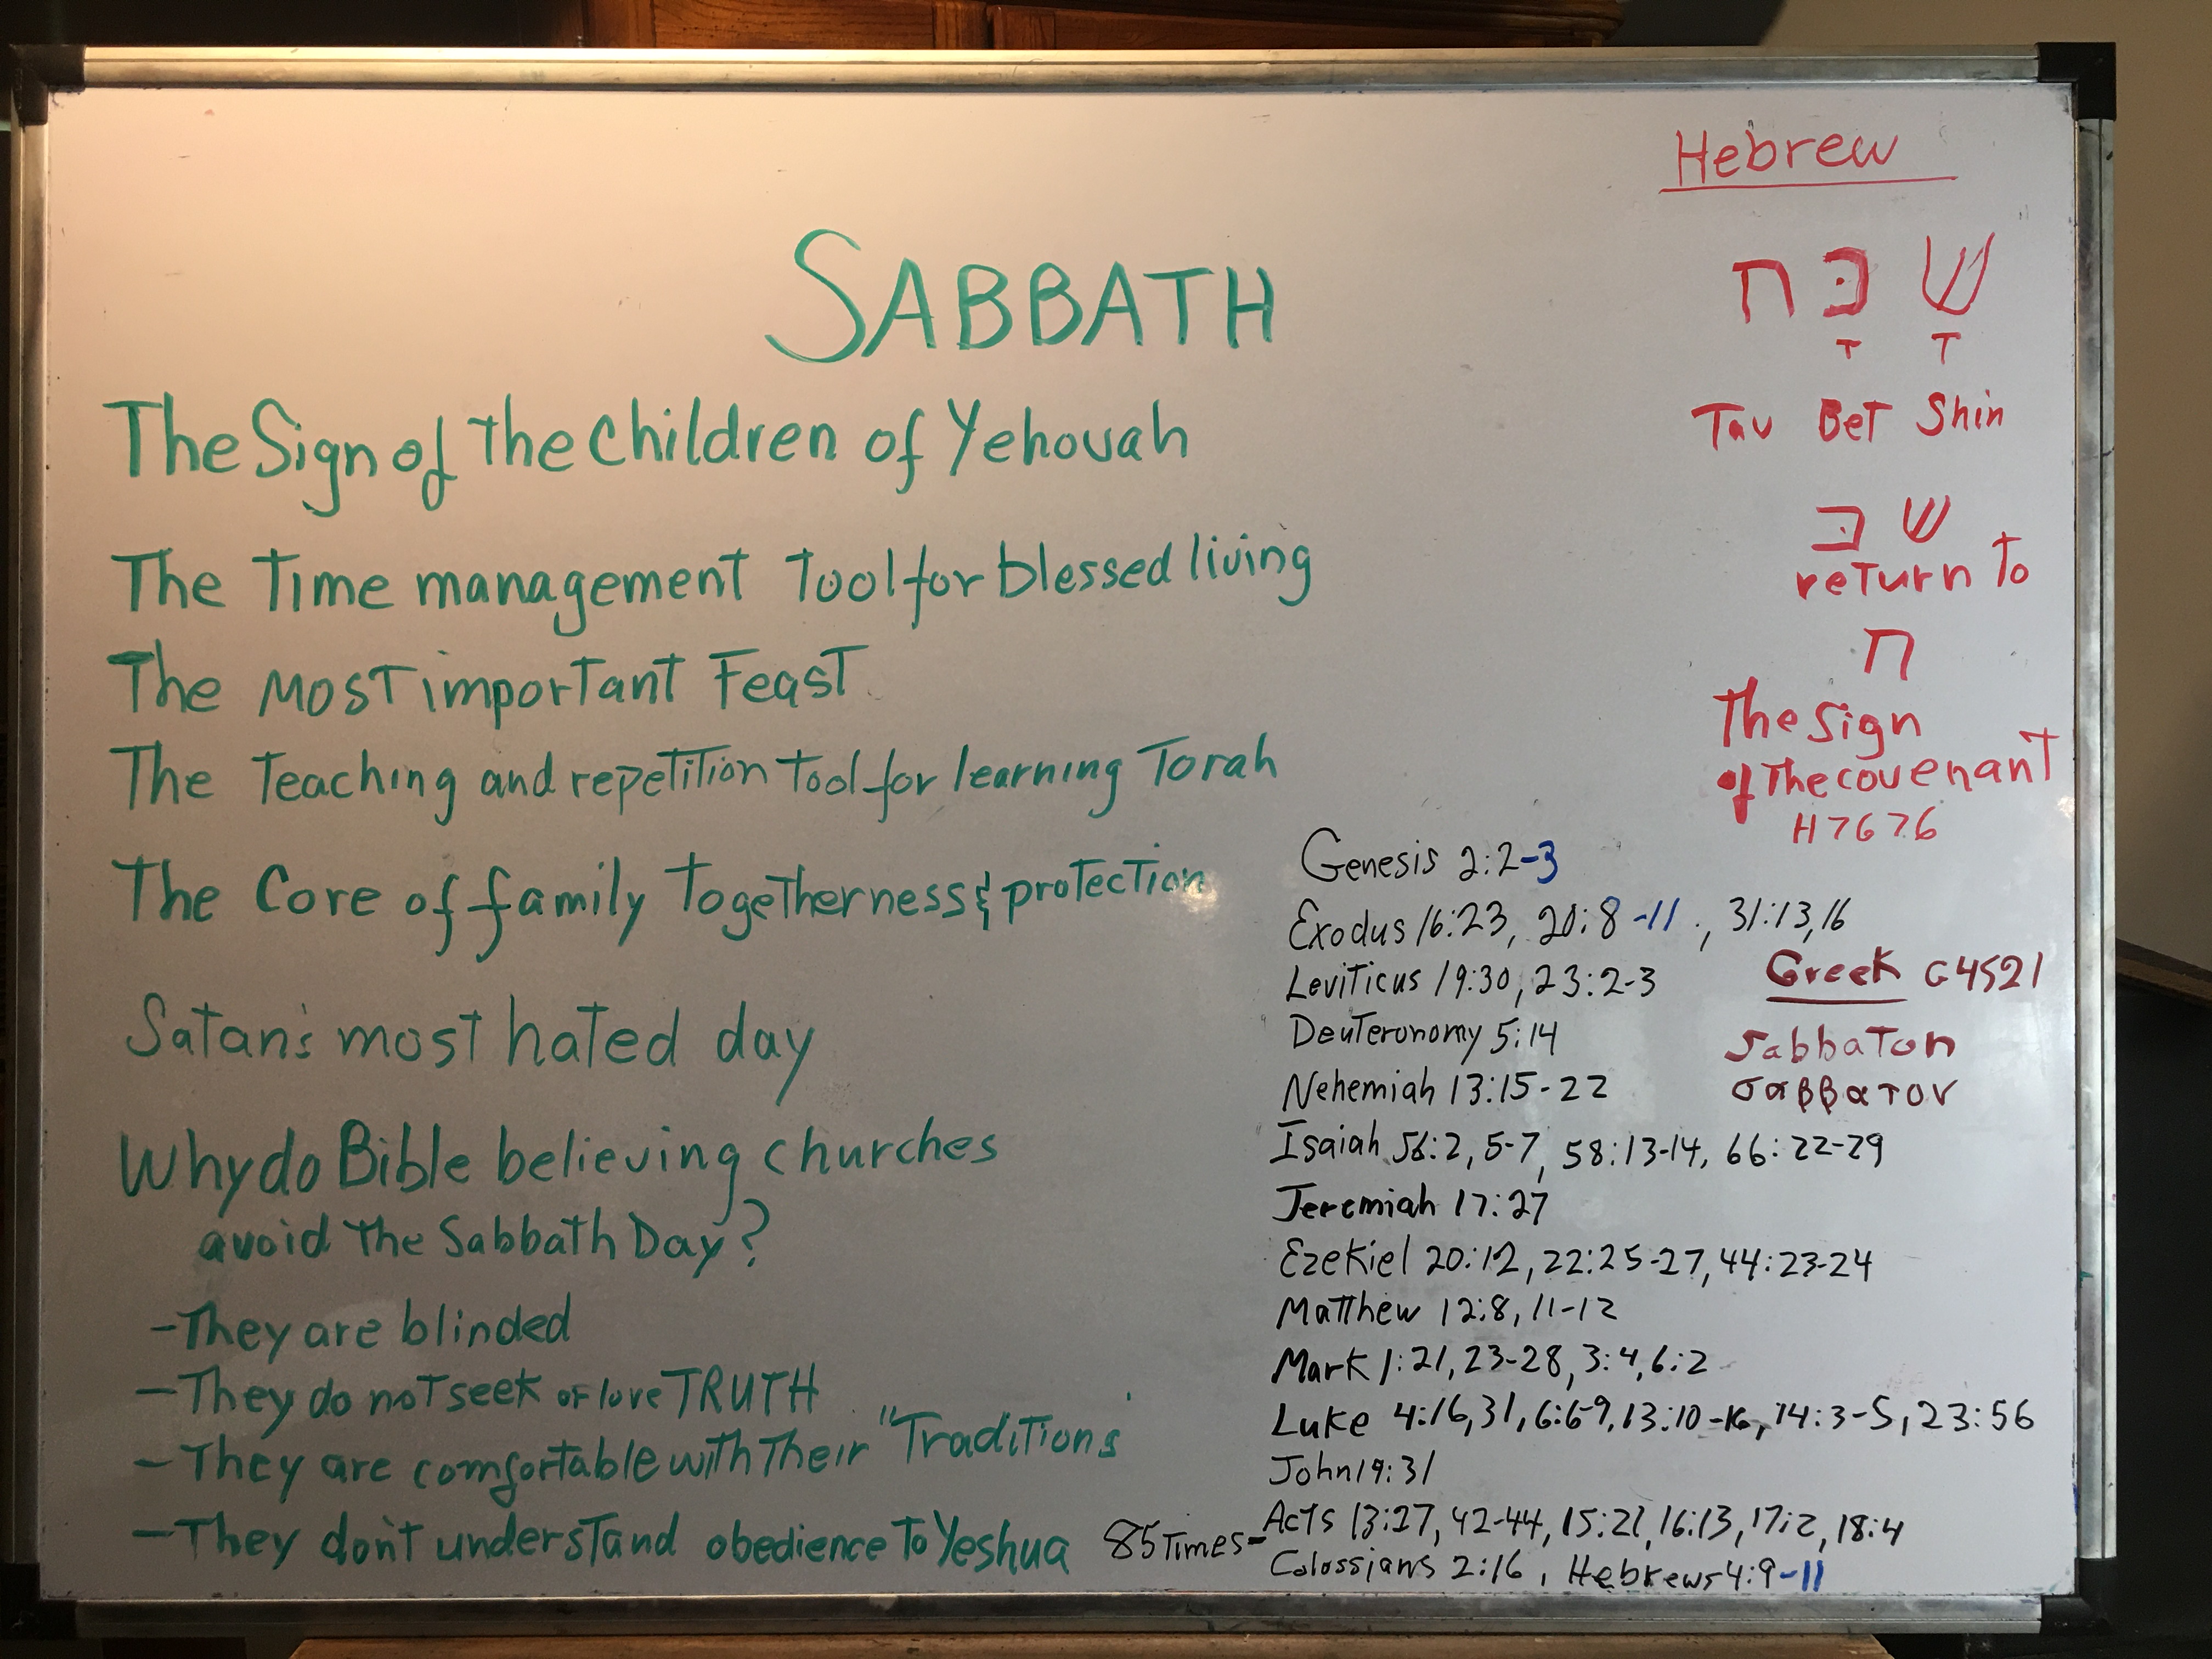 SABBATH
The Sign of the Children of Yehovah
The Time management Tool for blessed living
The Most important Feast
The Teaching and repetition tool for learning Torah
The Core of family Togetherness & protection
Satan's most hated day
Why do Bible believing churches
avoid the Sabbath Day?
-They are blinded
-They do not seek or love TRUTH
-They are comfortable with their "Traditions"
-They don't understand obedience to Yeshua
Hebrew
שָׁבָּת
Tav Bet Shin
שבּ
return to
ת
The Sign
of The covenant
H7676
Genesis 2:2-3
Exodus 16:23, 20:8-11, 31:13,16
Leviticus 19:30, 23:2-3
Deuteronomy 5:14
Nehemiah 13:15-22
Isaiah 56:2, 5-7, 58:13-14, 66:22-29
Jeremiah 17:27
Ezekiel 20:12, 22:25-27, 44:23-24
Matthew 12:8, 11-12
Mark 1:21, 23-28, 3:4, 6:2
Luke 4:16, 31, 6:6-9, 13:10-16, 14:3-5, 23:56
John 19:31
85 Times- Acts 13:27, 42-44, 15:21, 16:13, 17:2, 18:4
Colossians 2:16, Hebrews 4:9-11
Greek G4521
Sabbaton
σαββατον